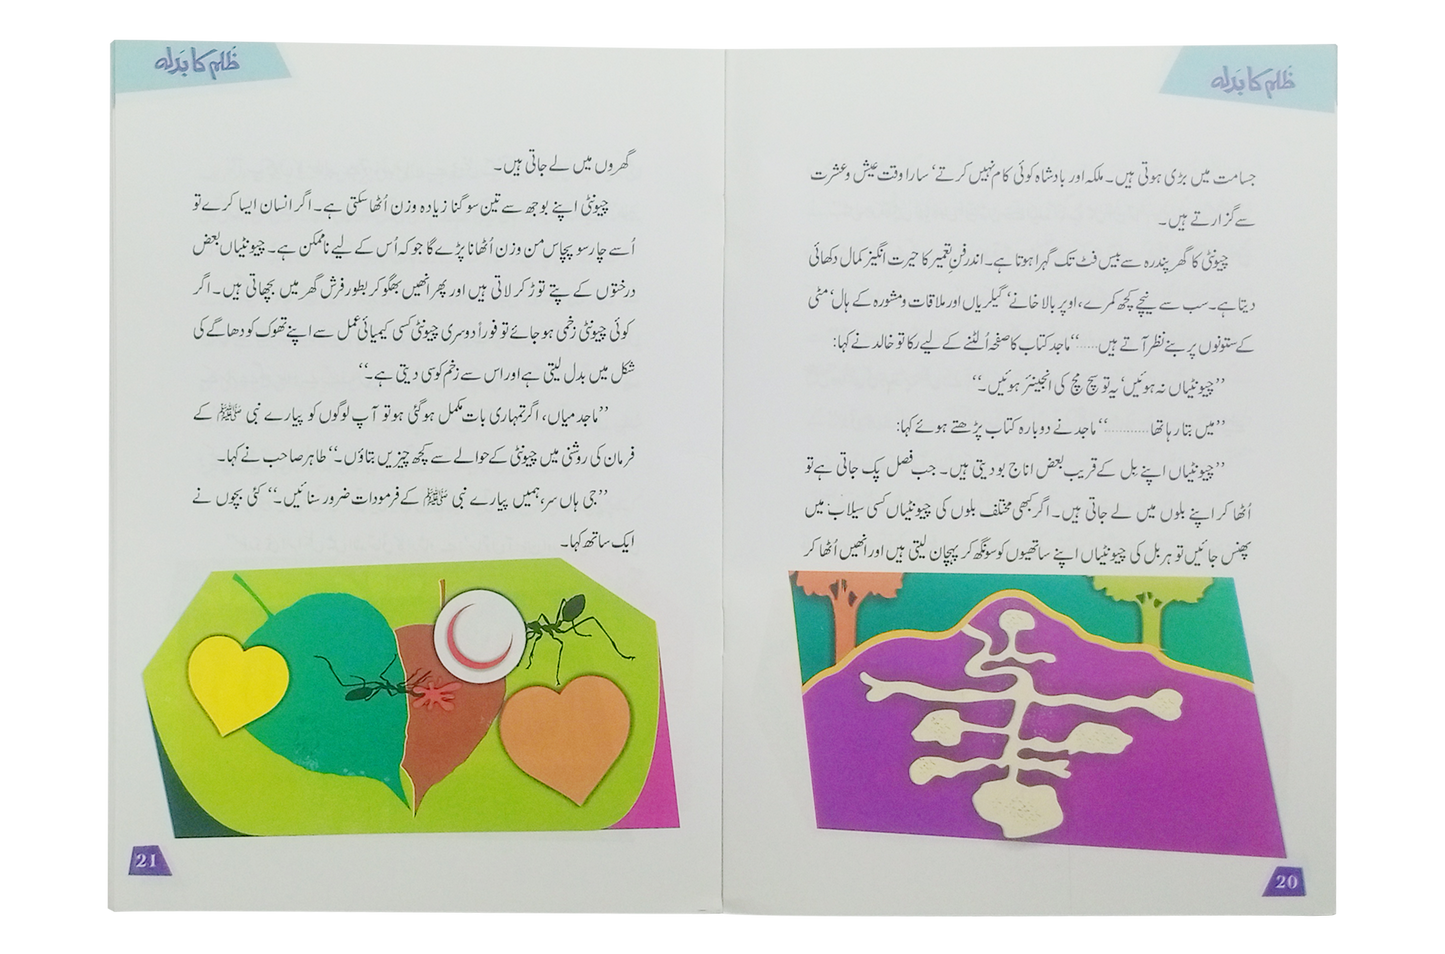 ظلم کا بدلہ
جسامت میں بڑی ہوتی ہیں۔ ملکہ اور بادشاہ کوئی کام نہیں کرتے‘ سارا وقت عیش و عشرت
سے گزارتے ہیں۔
چیونٹی کا گھر پندرہ سے بیس فٹ تک گہرا ہوتا ہے۔ اندر فنِ تعمیر کا حیرت انگیز کمال دکھائی
دیتا ہے۔ سب سے نیچے کچھ کمرے، اوپر بالا خانے‘ گیلریاں اور ملاقات و مشورہ کے ہال‘ مٹی
کے ستونوں پر بنے نظر آتے ہیں.....‘‘ ماجد کتاب کا صفحہ اُلٹنے کے لیے رکا تو خالد نے کہا:
’’چیونٹیاں نہ ہوئیں‘ یہ تو سچ مچ کی انجینئر ہوئیں۔‘‘
’’میں بتا رہا تھا...........‘‘ ماجد نے دوبارہ کتاب پڑھتے ہوئے کہا:
’’چیونٹیاں اپنے بل کے قریب بعض اناج بو دیتی ہیں۔ جب فصل پک جاتی ہے تو
اُٹھا کر اپنے بلوں میں لے جاتی ہیں۔ اگر کبھی مختلف بلوں کی چیونٹیاں کسی سیلاب میں
پھنس جائیں تو ہر بل کی چیونٹیاں اپنے ساتھیوں کو سونگھ کر پہچان لیتی ہیں اور انھیں اُٹھا کر
20
ظلم کا بدلہ
گھروں میں لے جاتی ہیں۔
چیونٹی اپنے بوجھ سے تین سو گنا زیادہ وزن اُٹھا سکتی ہے۔ اگر انسان ایسا کرے تو
اُسے چار سو پچاس من وزن اُٹھانا پڑے گا جو کہ اُس کے لیے ناممکن ہے۔ چیونٹیاں بعض
درختوں کے پتے توڑ کر لاتی ہیں اور پھر انھیں بھگو کر بطور فرش گھر میں بچھاتی ہیں۔ اگر
کوئی چیونٹی زخمی ہو جائے تو فوراً دوسری چیونٹی کسی کیمیائی عمل سے اپنے تھوک کو دھاگے کی
شکل میں بدل لیتی ہے اور اس سے زخم کو سی دیتی ہے۔‘‘
’’ماجد میاں، اگر تمہاری بات مکمل ہو گئی ہو تو آپ لوگوں کو پیارے نبی ﷺ کے
فرمان کی روشنی میں چیونٹی کے حوالے سے کچھ چیزیں بتاؤں۔‘‘ طاہر صاحب نے کہا۔
’’جی ہاں سر، ہمیں پیارے نبی ﷺ کے فرمودات ضرور سنائیں۔‘‘ کئی بچوں نے
ایک ساتھ کہا۔
21